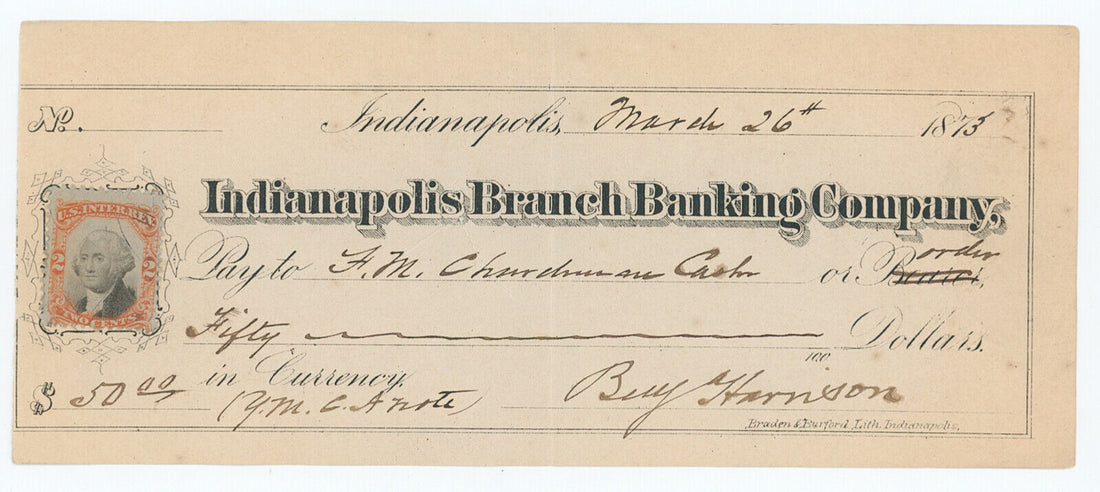 No. Indianapolis, March 26th 1873
Indianapolis Branch Banking Company,
U.S. INTER. REV.
2 2
TWO CENTS
Pay to F. M. Churchman Cashr or Bearer, order
Fifty Dollars.
100
$ 50 00 in Currency,
(Y. M. C. A note) Benj Harrison
Braden & Burford, Lith. Indianapolis,